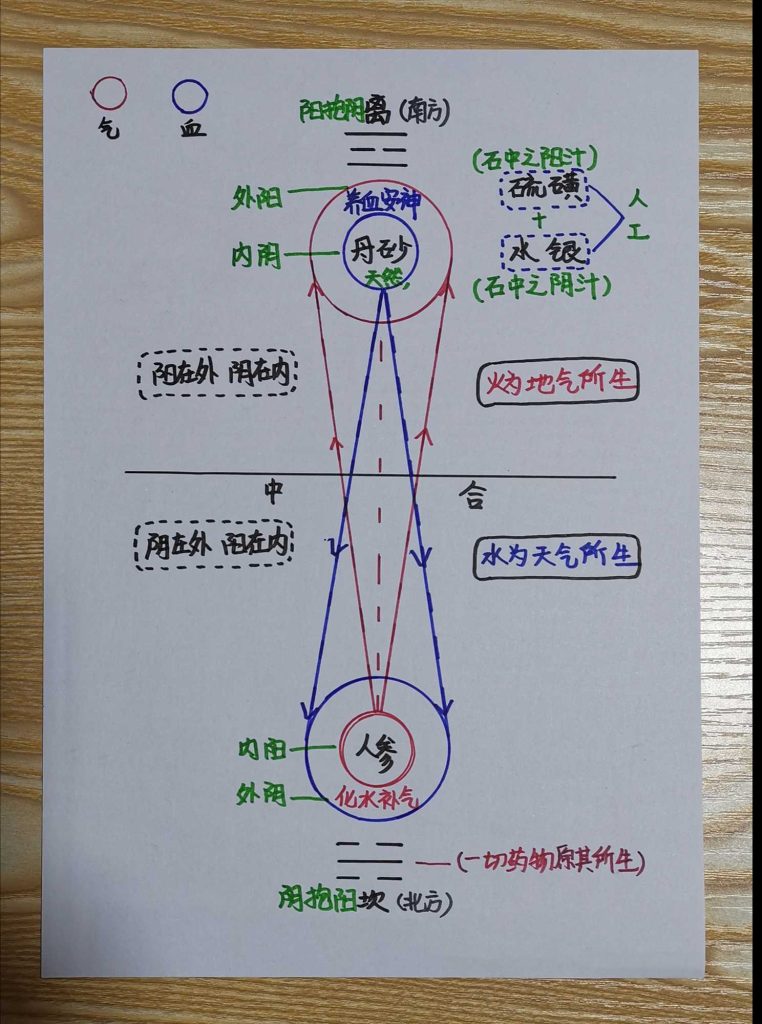 气
血
阳抱阴离(南方)
(石中之阳汁)
硫磺
外阳
养血安神
+
人工
内阴
丹砂
天然
水银
(石中之阴汁)
阳在外 阴在内
火为地气所生
中
合
阴在外 阳在内
水为天气所生
内阳
人参
外阴
化水补气
(一切药物原其所生)
阴抱阳坎(北方)